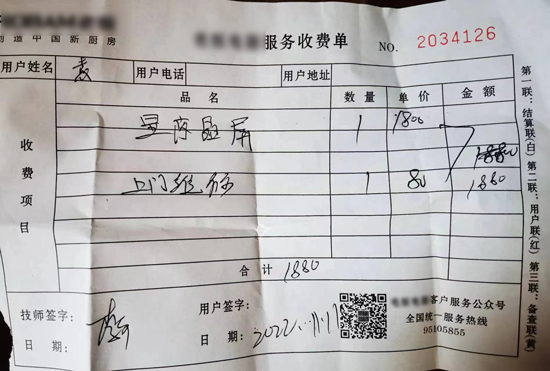 创造中国新厨房
服务收费单 NO. 2034126
用户姓名 袁 用户电话 用户地址
品名 数量 单价 金额
收费项目
显示显屏 1 1800
1880
上门维修 1 80 1880
合计 1880
技师签字:
用户签字:
日期:
日期: 2022.11.17
客户服务公众号
全国统一服务热线
95105855
第一联:结算联(白) 第二联:用户联(红) 第三联:备查联(黄)